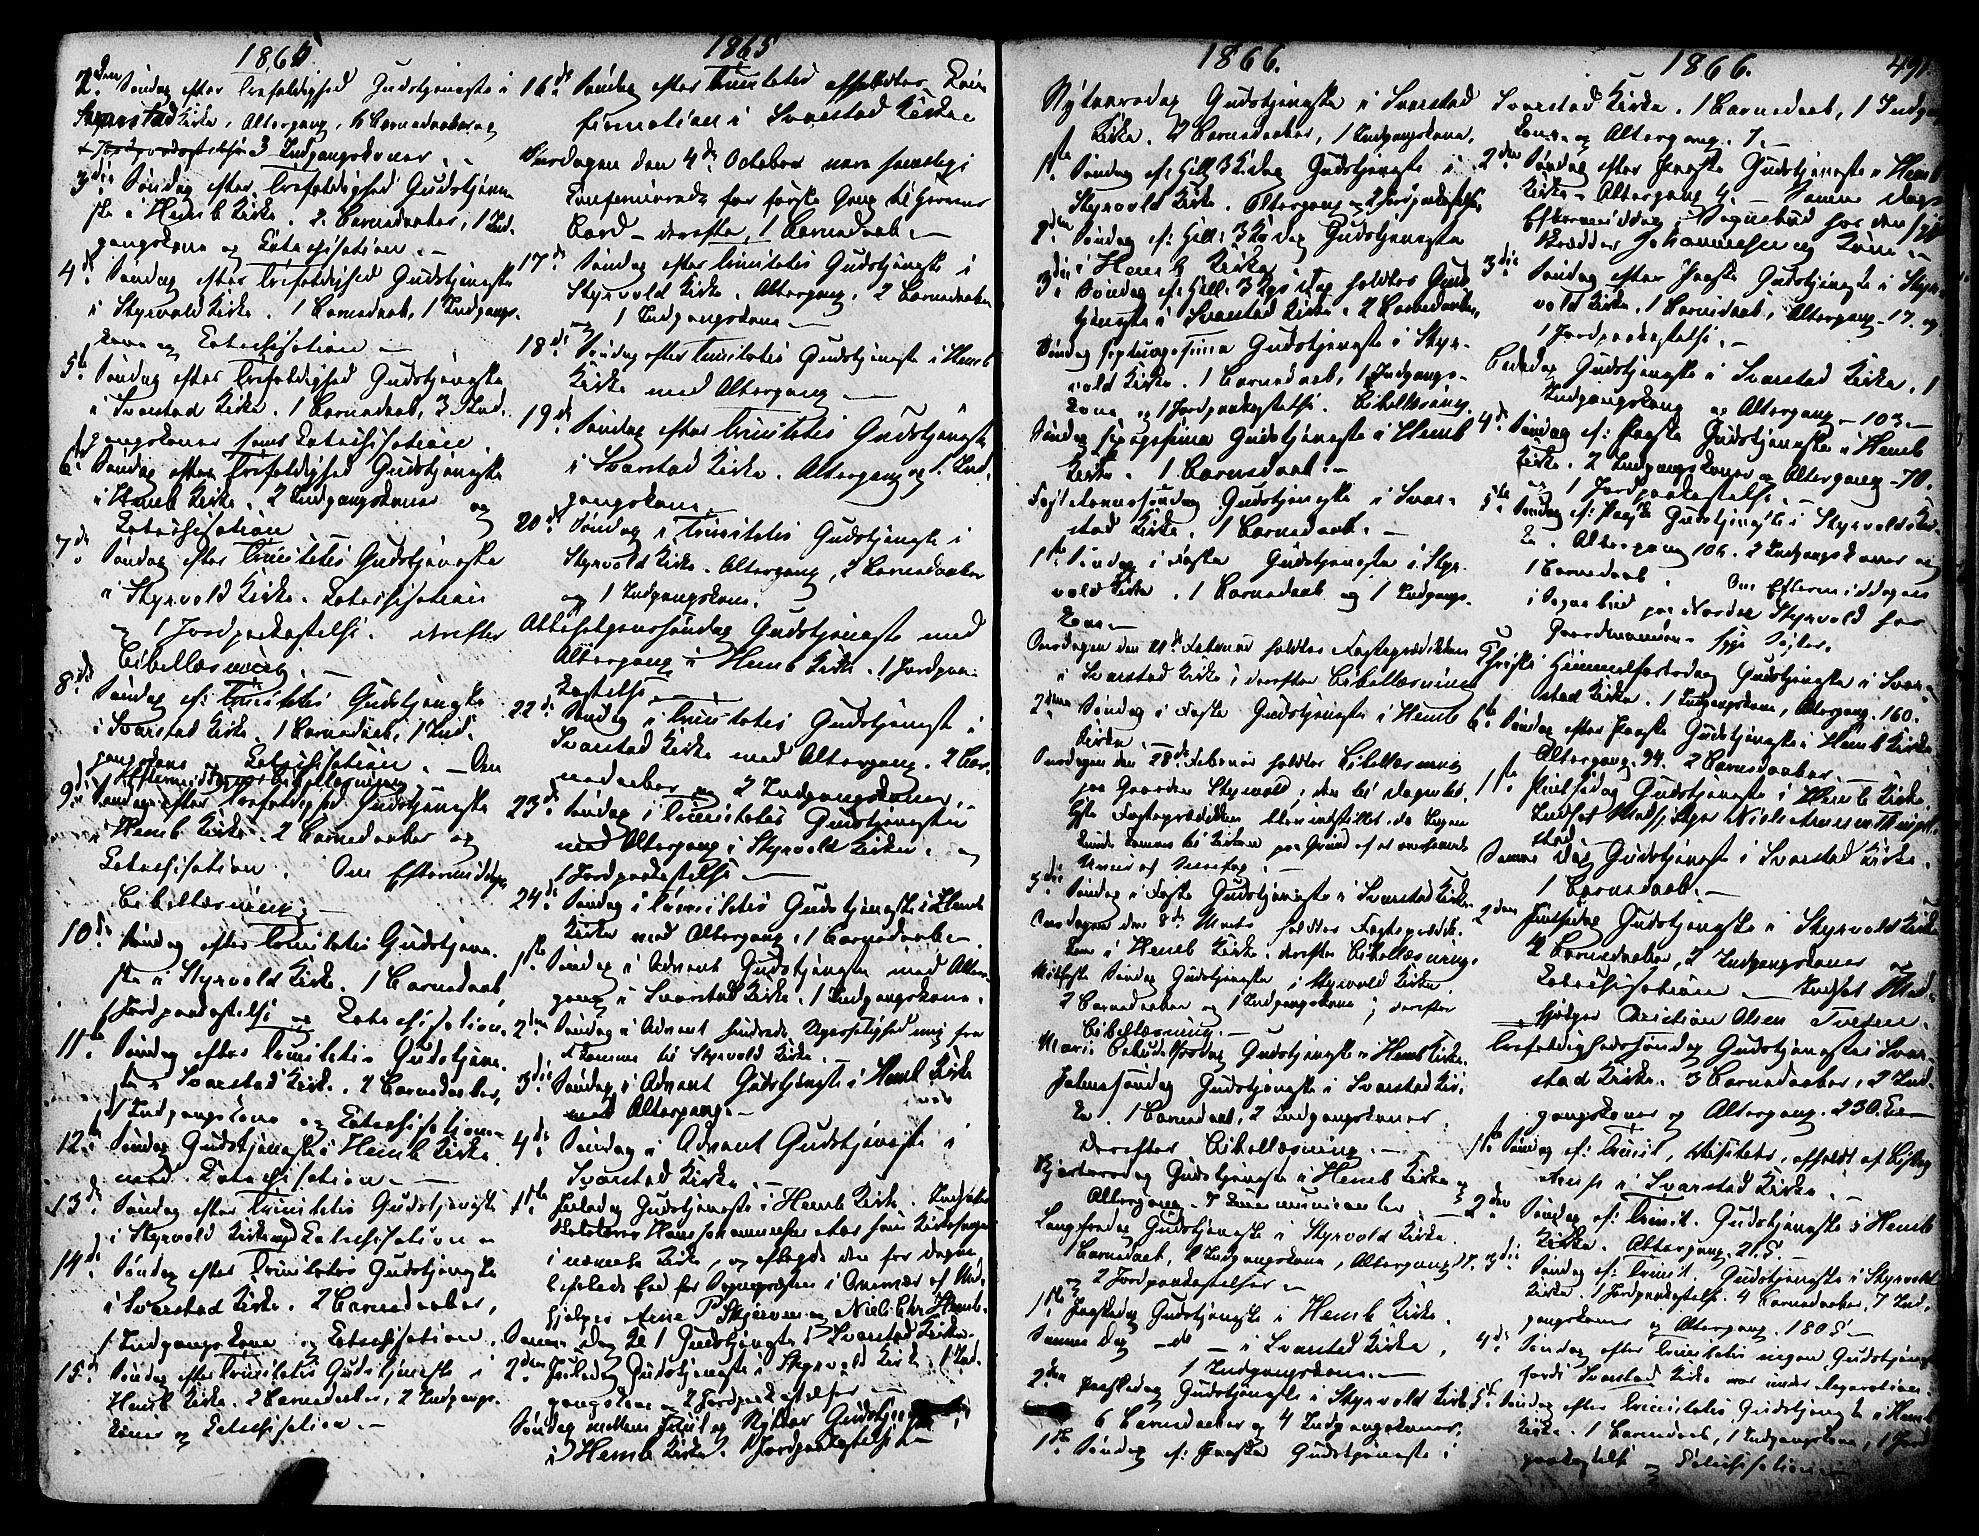 1865.
2den Søndag efter Trefoldighed Gudstjeneste i
Svarstad Kirke, Altergang, Barnedaaber og
3 Indgangskoner.
3die Søndag efter Trefoldighed Gudstjene-
ste i Hemb Kirke. 2 Barnedaaber, 1 Ind-
gangskone og Catechisation. -
4de Søndag efter Trefoldighed Gudstjeneste
i Styrvold Kirke. 1 Barnedaab, 1 Indgangs-
kone og Catechisation -
5te Søndag efter Trefoldighed Gudstjeneste
i Svarstad Kirke. 1 Barnedaab, 3 Ind-
gangskoner samt Catechisation.
6te Søndag efter Trefoldighed Gudstjeneste
i Hemb Kirke. 2 Indgangskoner og
Catechisation
7de Søndag efter Trinitatis Gudstjeneste
i Styrvold Kirke. Catechisation
og 1 Jordpaakastelse. derefter
Bibellæsning. -
8de Søndag ef: Trinitatis Gudstjeneste
i Svarstad Kirke. 1 Barnedaab, 1 Ind-
gangskone og Catechisation. - Om
Eftermiddagen Bibellæsning
9de Søndag efter Trefoldighed Gudstjeneste
i Hemb Kirke. 2 Barnedaaber og
Catechisation. Om Eftermiddagen
Bibellæsning. -
10de Søndag efter Trinitatis Gudstjene-
ste i Styrvold Kirke. 1 Barnedaab,
1 Jordpaakastelse og Catechisation.
11te Søndag efter Trinitatis Gudstjene-
ste i Svarstad Kirke. 2 Barnedaaber,
1 Indgangskone og Catechisation -
12te Søndag Gudstjeneste i Hemb Kirke
med Catechisation. -
13de Søndag efter Trinitatis Gudstjeneste
i Styrvold Kirke med Catechisation -
14de Søndag efter Trinitatis Gudstjeneste
i Svarstad Kirke. 2 Barnedaaber,
1 Indgangskone og Catechisation.
15de Søndag efter Trinitatis Gudstjeneste i
Hemb Kirke. 2 Barnedaaber, 2 Indgangs-
koner og Catechisation. -
1865
16de Søndag efter Trinitatis affholdtes Kon-
firmation i Svarstad Kirke.
Onsdagen den 4de October vare samtlige
Confirmerede for første Gang til Herrens
Bord - derefter 1 Barnedaab. -
17de Søndag efter Trinitatis Gudstjeneste i
Styrvold Kirke. Altergang. 2 Barnedaaber
og 1 Indgangskone -
18de Søndag efter Trinitatis Gudstjeneste i Hemb
Kirke med Altergang -
19de Søndag efter Trinitatis Gudstjeneste
i Svarstad Kirke. Altergang og 1 Ind-
gangskone.
20de Søndag i Trinitatis Gudstjeneste i
Styrvold Kirke. Altergang, 2 Barnedaaber
og 1 Indgangskone.
Allehelgenssøndag Gudstjeneste med
Altergang i Hemb Kirke. 1 Jordpaa-
kastelse. -
22de Søndag i Trinitatis Gudstjeneste i
Svarstad Kirke med Altergang. 2 Bar-
nedaaber og 2 Indgangskoner. -
23de Søndag i Trinitatis Gudstjeneste
med Altergang i Styrvold Kirke. og
1 Jordpaakastelse -
24de Søndag i Trinitatis Gudstjeneste i Hemb
Kirke med Altergang. 1 Barnedaab. -
1ste Søndag i Advent Gudstjeneste med Alter-
gang i Svarstad Kirke. 1 Indgangskone.
2den Søndag i Advent hindrede Upasselighed mig fra
at komme til Styrvold Kirke. -
3die Søndag i Advent Gudstjeneste i Hemb Kirke
med Altergang. -
4de Søndag i Advent Gudstjeneste i
Svarstad Kirke. -
1ste Juledag Gudstjeneste i Hemb Kirke. Indsattes
Hans Johannessen som Kirkesanger
i nævnte Kirke, og aflagde den for
Eed for Sognepræsten i Overvær af Med-
hjelper Arne P. Skjerven og Niels Chr. Hemb.
Samme Dag Kl 1 Gudstjeneste i Svarstad Kirke.
2den Juledag Gudstjeneste i Styrvold Kirke. 1 Ind-
gangskone og 2 Jordpaakastelser -
Søndag mellem Juul og Nytaar Gudstjeneste
i Hemb Kirke. 1 Jordpaakastelse -
1866.
Nytaarsdag Gudstjeneste i Svarstad
Kirke. 2 Barnedaaber, 1 Indgangskone.
1ste Søndag ef: Hell. 3 K. dag Gudstjeneste i
Styrvold Kirke. Altergang og 2 Jordpaakastelser
2den Søndag ef: Hell: 3 K. dag Gudstjeneste
i Hemb Kirke
3die Søndag ef: Hell. 3 Kgs dag holdtes Guds-
tjeneste i Svarstad Kirke. 2 Barnedaaber.
Søndag Septuagesima Gudstjeneste i Styr-
vold Kirke. 1 Barnedaab, 1 Indgangs-
kone og 1 Jordpaakastelse. Bibellæsning
Søndag Sexagesima Gudstjeneste i Hemb
Kirke. 1 Barnedaab. -
Fastelavnssøndag Gudstjeneste i Svar-
stad Kirke. 1 Barnedaab. -
1ste Søndag i Faste Gudstjeneste i Styr-
vold Kirke. 1 Barnedaab og 1 Indgangs-
kone -
Onsdagen den 21de Februar holdtes Fasteprædiken
i Svarstad Kirke; derefter Bibellæsning
2den Søndag i Faste Gudstjeneste i Hemb
Kirke. -
Onsdagen den 28de Februar holdtes Bibellæsning
paa Gaarden Styrvold; den til Dagen be-
stemte Fasteprædiken blev indstillet, da Ingen
kunde komme til Kirken paa Grund af et
Uveir af Snefog. -
3die Søndag i Faste Gudstjeneste i Svarstad Kirke
Onsdagen den 8de Marts holdtes Fasteprædi-
ken i Hemb Kirke. derefter Bibellæsning.
Midfaste Søndag Gudstjeneste i Styrvold Kirke.
2 Barnedaaber og 1 Indgangskone; derefter
Bibellæsning. -
Mariæ Bebudelsesdag Gudstjeneste i Hemb Kirke.
Palmesøndag Gudstjeneste i Svarstad Kir-
ke. 1 Barnedaab, 2 Indgangskoner.
Derefter Bibellæsning. -
Skjærtorsdag Gudstjeneste i Hemb Kirke og
Altergang. 7 Communicanter. -
Langfredag Gudstjeneste i Styrvold Kirke.
1 Barnedaab, 2 Indgangskone, Altergang
og 2 Jordpaakastelser -
1ste Paaskedag Gudstjeneste i Hemb Kirke.
Samme Dag - do - i Svarstad Kirke,
1 Indgangskone. -
2den Paaskedag Gudstjeneste i Styrvold Kirke
6 Barnedaaber og 4 Indgangskoner.
1ste Søndag ef: Paaske Gudstjeneste i
1866. 491
Svarstad Kirke. 1 Barnedaab, 1 Indgangs-
kone og Altergang. 7. -
2den Søndag efter Paaske Gudstjeneste i Hemb
Kirke - Altergang 4. - Samme Dags
Eftermiddag Sognebud hos den syge
Skrædder Johannesen og Kone. -
3die Søndag efter Paaske Gudstjeneste i Styr-
vold Kirke. 1 Barnedaab, Altergang - 17. og
1 Jordpaakastelse. -
Bededag Gudstjeneste i Svarstad Kirke. 1
Indgangskone og Altergang - 103 -
4de Søndag ef: Paaske Gudstjeneste i Hemb
Kirke. 2 Indgangskoner og Altergang - 70.
og 1 Jordpaakastelse. -
5te Søndag ef: Paaske Gudstjeneste i Styrvold Kir-
ke. Altergang 106. 2 Indgangskoner og
1 Barnedaab. Om Eftermiddagen
i Sognebud paa Nordre Styrvold hos
Gaardmandens syge Datter.
Christi Himmelfartsdag Gudstjeneste i Svar-
stad Kirke. 1 Indgangskone, Altergang. 160.
6te Søndag efter Paaske Gudstjeneste i Hemb Kirke.
Altergang. 94. 2 Barnedaaber. -
1ste Pintsedag Gudstjeneste i Hemb Kirke.
Indsat Medhjelper Niels
Samme Dag Gudstjeneste i Svarstad Kirke.
1 Barnedaab. -
2den Pintsedag Gudstjeneste i Styrvold Kirke
4 Barnedaaber, 2 Indgangskoner og
Catechisation - Indsat Med-
hjelper Christian Olsen Tveten.
Trefoldighedssøndag Gudstjeneste i Svar-
stad Kirke. 3 Barnedaaber, 2 Ind-
gangskoner og Altergang. 230.
1ste Søndag ef: Trinit. Visitats, afholdt af Biskop
Arup i Svarstad Kirke. -
2den Søndag ef: Trinit. Gudstjeneste i Hemb
Kirke. Altergang. 215. -
3die Søndag ef: Trinit. Gudstjeneste i Styrvold
Kirke. 1 Jordpaakastelse. 4 Barnedaaber, 7 Ind-
gangskoner og Altergang. 180
4de Søndag efter Trinitatis ingen Gudstjeneste
fordi Svarstad Kirke var under Reparation.
5te Søndag efter Trinitatis Gudstjeneste i Hemb
Kirke. 1 Barnedaab, 1 Indgangskone, 1 Jord-
paakastelse og Catechisation -